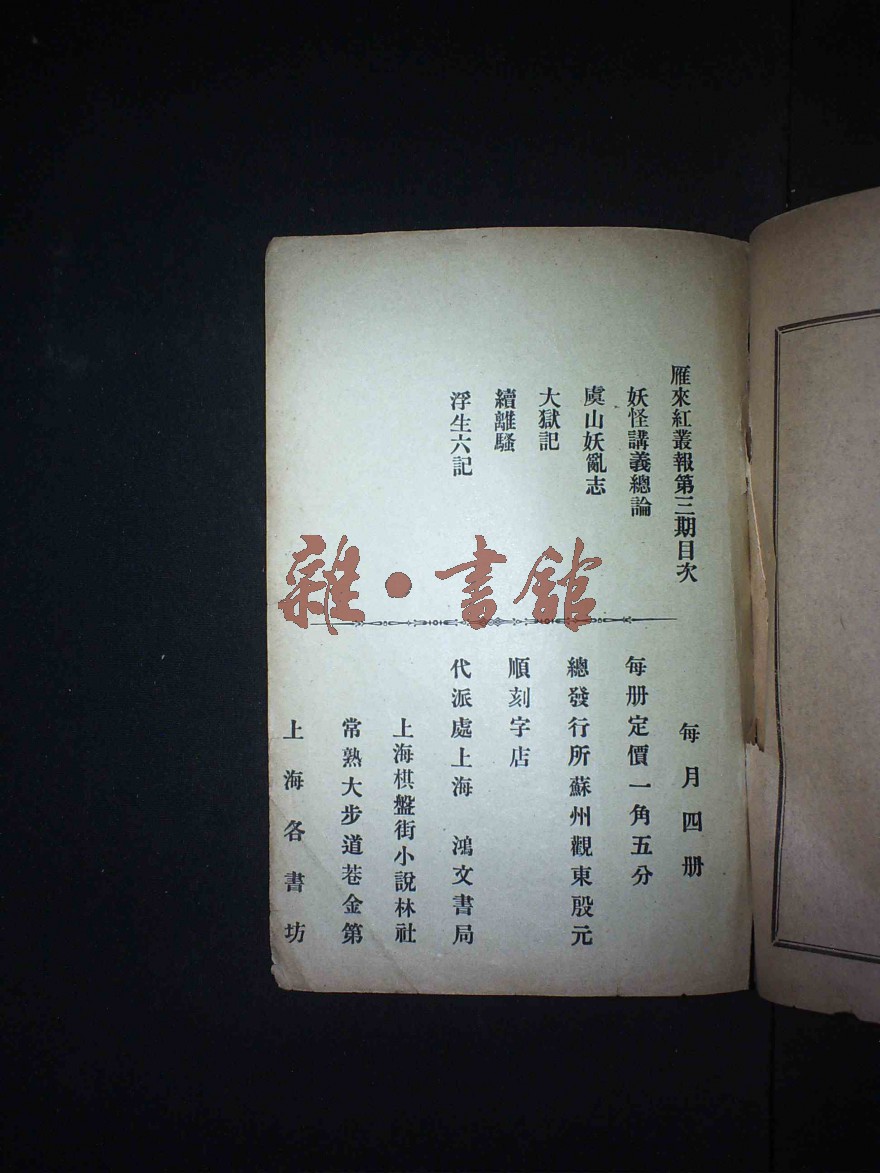 雁來紅叢報第三期目次
妖怪講義總論
虞山妖亂志
大獄記
續離騷
浮生六記
雜·書館
每月四册
每册定價一角五分
總發行所蘇州觀東殷元
順刻字店
代派處上海　鴻文書局
上海棋盤街小說林社
常熟大步道巷金第
上海各書坊